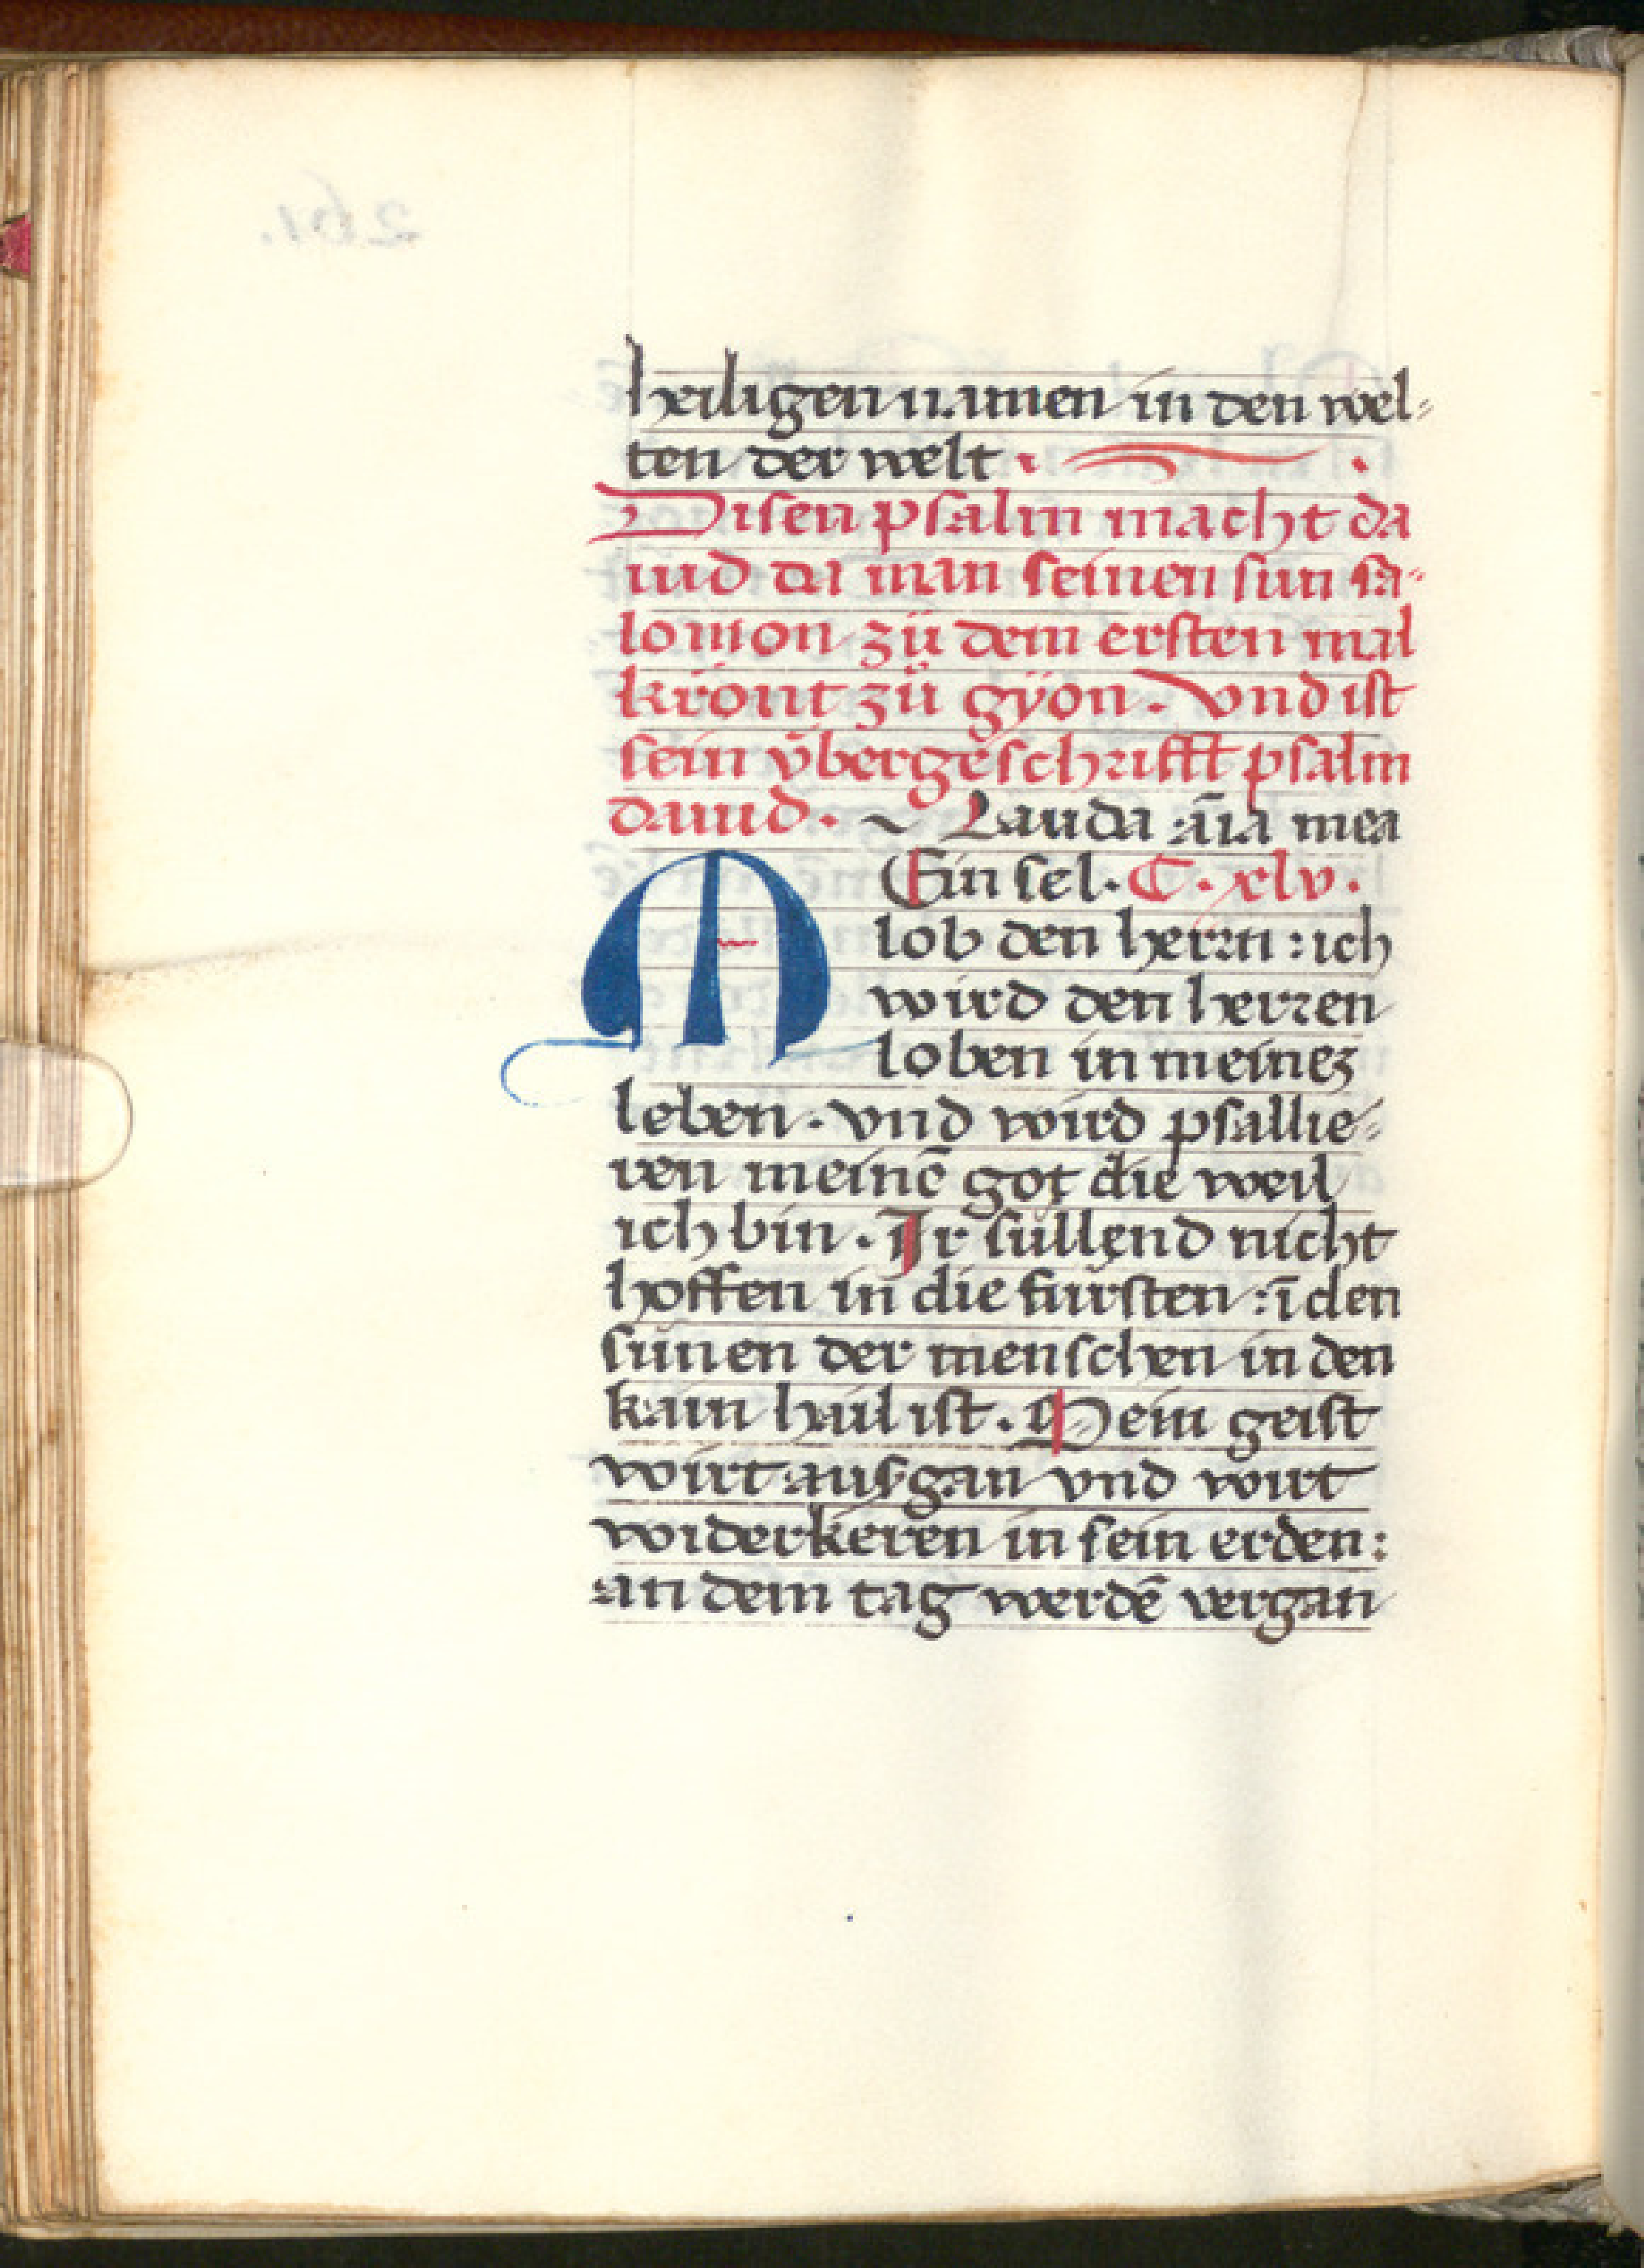 heiligen namen in den wel⸗
ten der welt ·
Disen psalm macht da
uid da man seinen sun sa⸗
lomon zů dem ersten mal
krönt zů gÿon. Vnd ist
sein v̈bergeschrifft psalm
dauid. ~ Lauda āīa mea
MEin sel. C. xlv.
lob den herrn : ich
wird den herren
loben in meinez
leben. vnd wird psallie⸗
ren meinē got die weil
ich bin. Ir süllend nicht
hoffen in die fürsten : ī den
sünen der menschen in den
kain hail ist. Sein geist
wirt ausgan vnd wirt
widerkeren in sein erden :
an dem tag werdē vergan